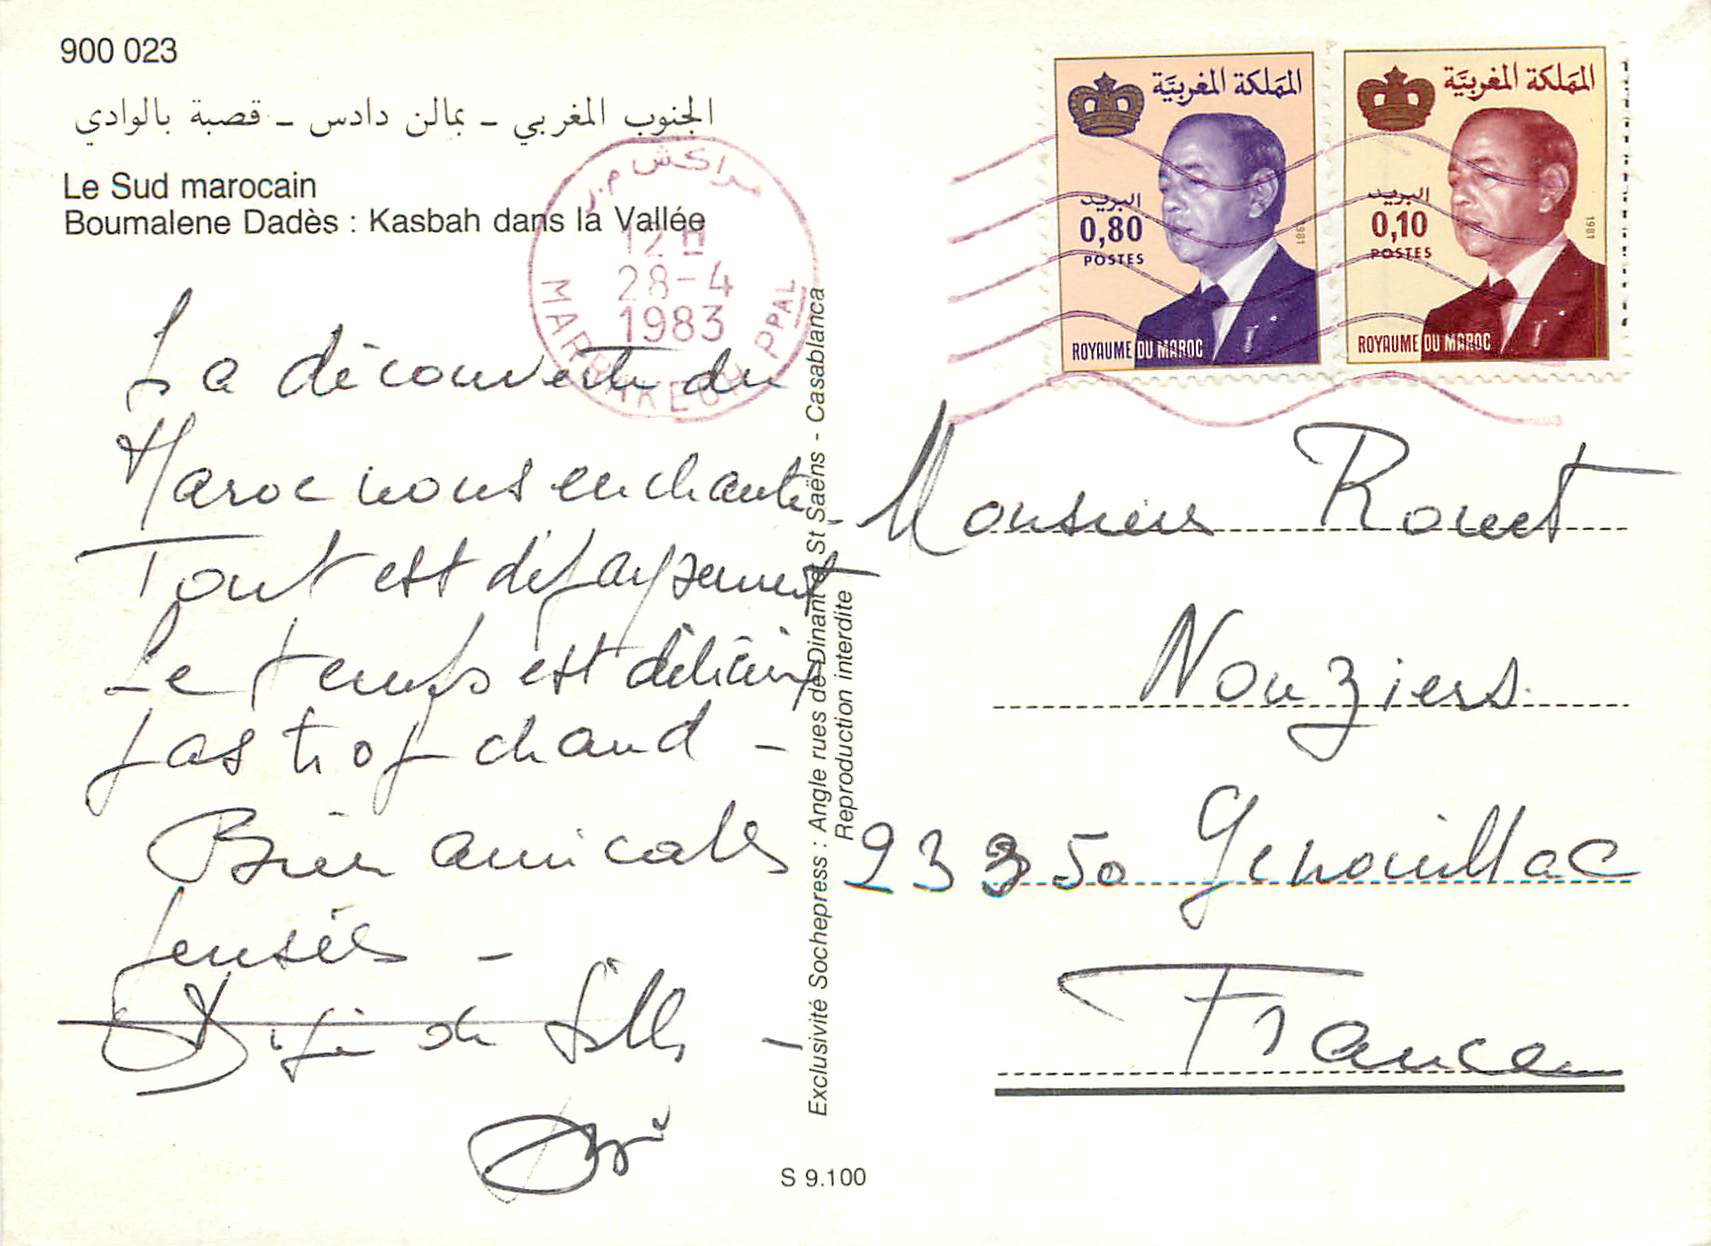 900 023
الجنوب المغربي ــ بمالن دادس ــ قصبة بالوادي
Le Sud marocain
Boumalene Dadès : Kasbah dans la Vallée
مراكش م.ر
12 H
28-4
1983
MARRAKECH PPAL
المملكة المغربيّة
البريد
0,80
POSTES
1981
ROYAUME DU MAROC
المملكة المغربيّة
البريد
0,10
POSTES
1981
ROYAUME DU MAROC
La découverte du
Maroc nous enchante
Tout est dépaysement
Le temps est délicieux
pas trop chaud –
Bien amicales
pensées –
de
Exclusivité Sochepress : Angle rues de Dinant et St Saëns - Casablanca
Reproduction interdite
Monsieur Rouet
Nouziers
23350 Genouillac
France
S 9.100